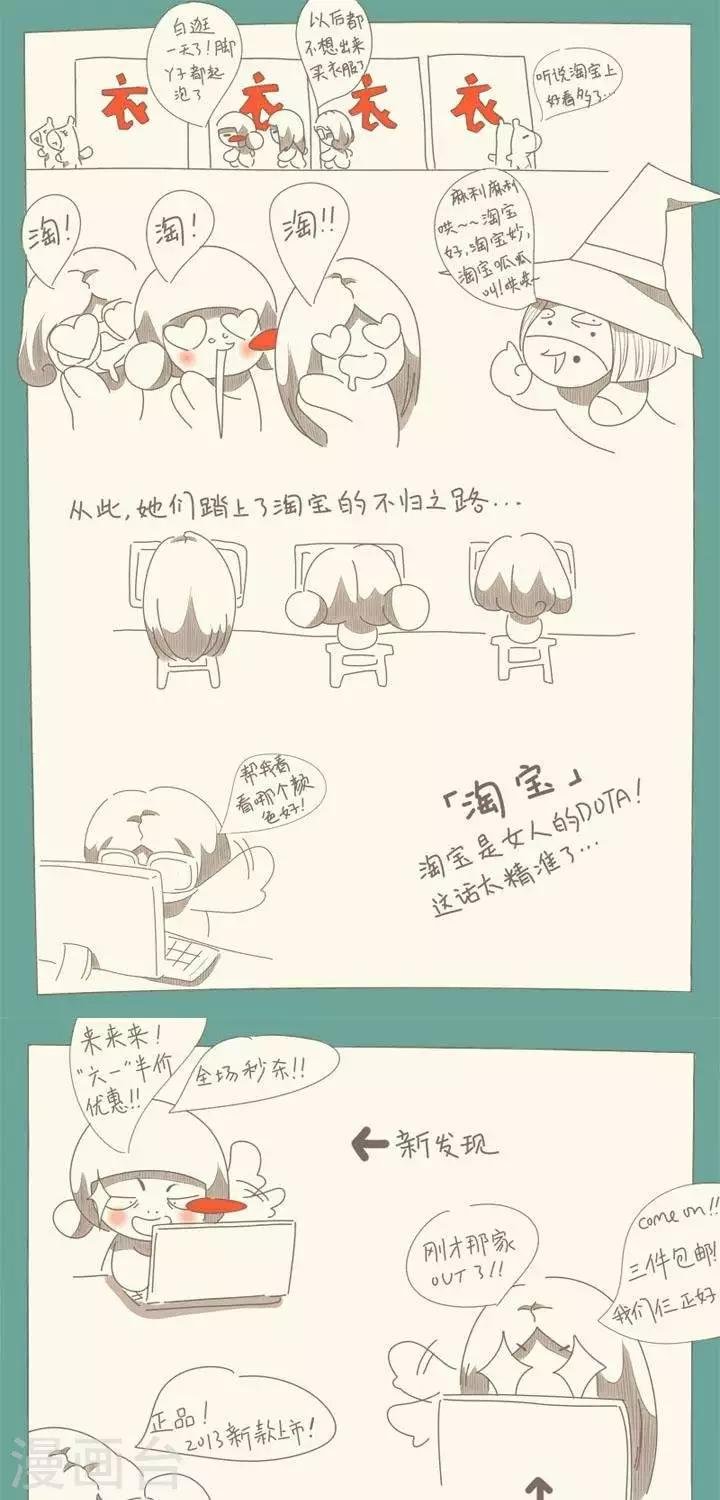 衣
白逛
一天了!脚
丫子都起
泡了
衣
以后都
不想出来
买衣服了
衣
衣
听说淘宝上
好看多了...
淘!
淘!
淘!!
麻利麻利
哄~~淘宝
好,淘宝妙,
淘宝呱呱
叫!哄哄~
从此,她们踏上了淘宝的不归之路...
帮我看
看哪个颜
色好!
「淘宝」
淘宝是女人的DOTA!
这话太精准了...
来来来!
"六一"半价
优惠!!
全场秒杀!!
←新发现
刚才那家
OUT了!!
come on!!
三件包邮!
我们仨正好
正品!
2013新款上市!
漫画台